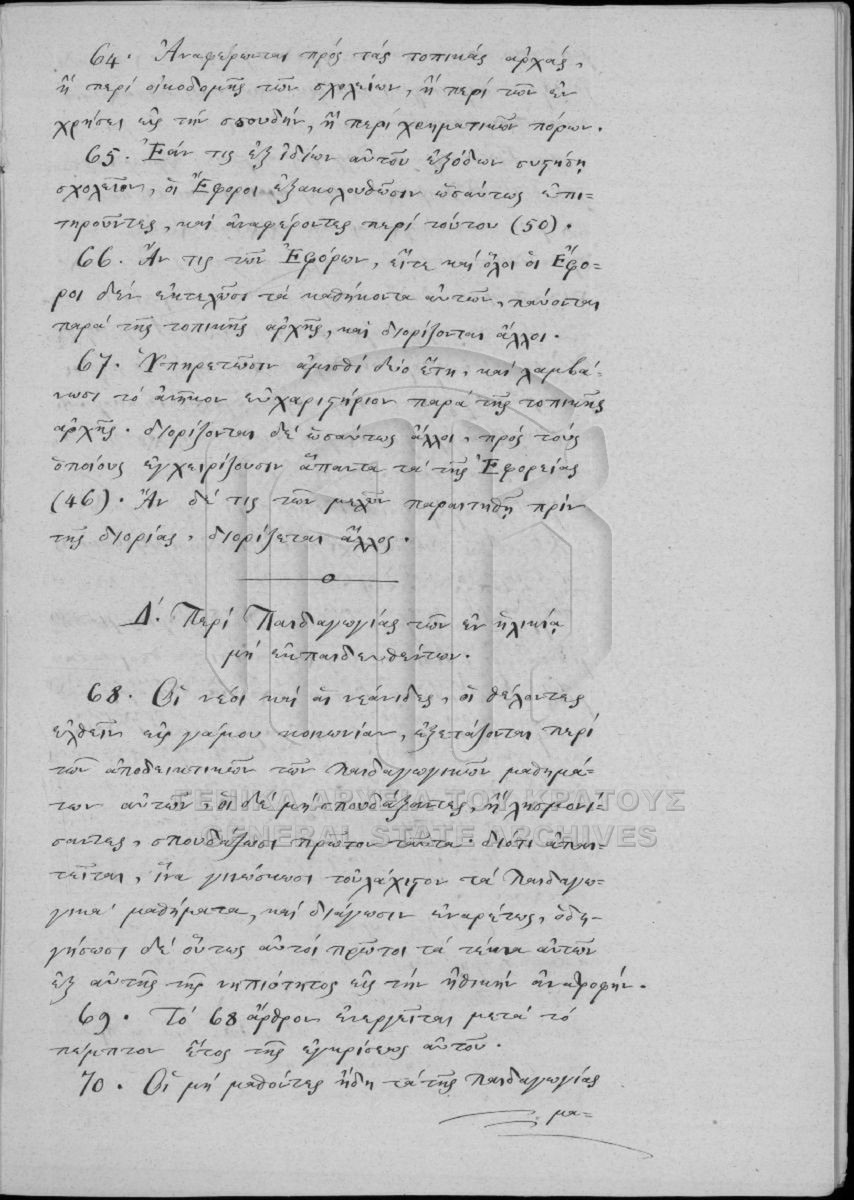 64. Ἀναφέρωνται πρός τάς τοπικάς ἀρχάς,
ἤ περί οἰκοδομῆς τῶν σχολείων, ἤ περί τῶν ἐν
χρήσει εἰς τήν σπουδήν, ἤ περί χρηματικῶν πόρων.
65. Ἐάν τις ἐξ ἰδίων αὐτοῦ ἐξόδων συστήσῃ
σχολεῖον, οἱ Ἔφοροι ἐξακολουθῶσιν ὡσαύτως ἐπι-
τηροῦντες, καί ἀναφέροντες περί τούτου (50).
66. Ἄν τις τῶν Ἐφόρων, εἴτε καί ὅλοι οἱ Ἔφο-
ροι δέν ἐκτελῶσι τά καθήκοντα αὐτῶν, παύονται
παρά τῆς τοπικῆς ἀρχῆς, καί διορίζονται ἄλλοι.
67. Ὑπηρετῶσιν ἀμισθί δύο ἔτη, καί λαμβά-
νωσι τό ἀνῆκον εὐχαριστήριον παρά τῆς τοπικῆς
ἀρχῆς. διορίζονται δέ ὡσαύτως ἄλλοι, πρός τούς
ὁποίους ἐγχειρίζουσιν ἅπαντα τά τῆς Ἐφορείας
(46). Ἄν δέ τις τῶν μελῶν παραιτηθῇ πρίν
τῆς διορίας, διορίζεται ἄλλος.
Δ. Περί Παιδαγωγίας τῶν ἐν ἡλικίᾳ
μή ἐκπαιδευθέντων.
68. Οἱ νέοι καί αἱ νεάνιδες, οἱ θέλοντες
ἐλθεῖν εἰς γάμου κοινωνίαν, ἐξετάζονται περί
τῶν ἀποδεικτικῶν τῶν Παιδαγωγικῶν μαθημά-
των αὐτῶν, οἱ δέ μή σπουδάξαντες, ἤ λησμονή-
σαντες, σπουδάζωσι πρῶτον ταῦτα. διότι ἀπαι-
τεῖται, ἵνα γινώσκωσι τοὐλάχιστον τά Παιδαγω-
γικά μαθήματα, καί διάγωσιν ἐναρέτως, ὁδη-
γήσωσι δέ οὕτως αὐτοί πρῶτοι τά τέκνα αὐτῶν
ἐξ αὐτῆς τῆς νηπιότητος εἰς τήν ἠθικήν ἀνατροφήν.
69. Τό 68 ἄρθρον ἐνεργεῖται μετά τό
πέμπτον ἔτος τῆς ἐγκρίσεως αὐτοῦ.
70. Οἱ μή μαθόντες ἤδη τά τῆς Παιδαγωγίας
μα-
ΓΕΝΙΚΑ ΑΡΧΕΙΑ ΤΟΥ ΚΡΑΤΟΥΣ
GENERAL STATE ARCHIVES